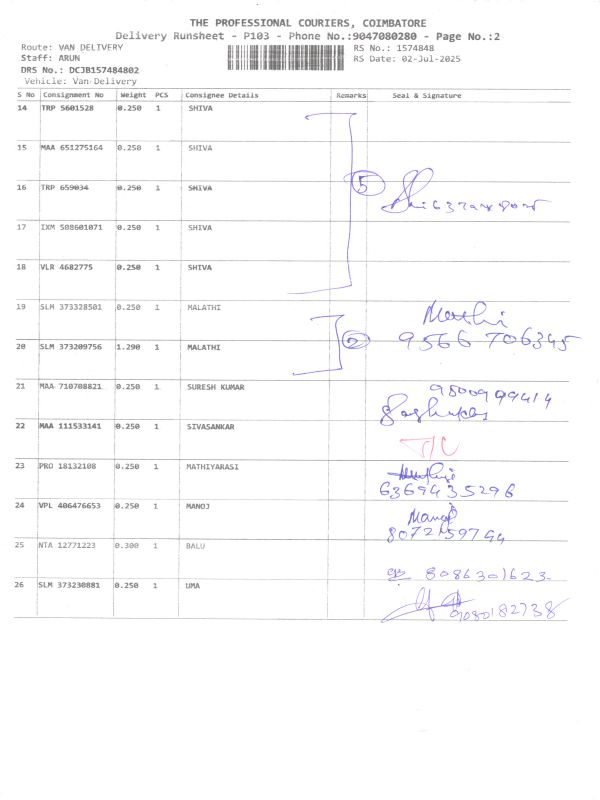 THE PROFESSIONAL COURIERS, COIMBATORE
Delivery Runsheet - P103 - Phone No.:9047080280 - Page No.:2
Route: VAN DELIVERY RS No.: 1574848
Staff: ARUN RS Date: 02-Jul-2025
DRS No.: DCJB157484802
Vehicle: Van Delivery
S No Consignment No Weight PCS Consignee Details Remarks Seal & Signature
14 TRP 5601528 0.250 1 SHIVA
15 MAA 651275164 0.250 1 SHIVA
16 TRP 659034 0.250 1 SHIVA 5
17 IXM 508601071 0.250 1 SHIVA
18 VLR 4682775 0.250 1 SHIVA
19 SLM 373328501 0.250 1 MALATHI
20 SLM 373209756 1.290 1 MALATHI 2 9566 706345
21 MAA 710708821 0.250 1 SURESH KUMAR
22 MAA 111533141 0.250 1 SIVASANKAR
23 PRO 18132108 0.250 1 MATHIYARASI
6369435296
24 VPL 406476653 0.250 1 MANOJ Manoj
25 NTA 12771223 0.300 1 BALU
8086301623
26 SLM 373230881 0.250 1 UMA
9080182738